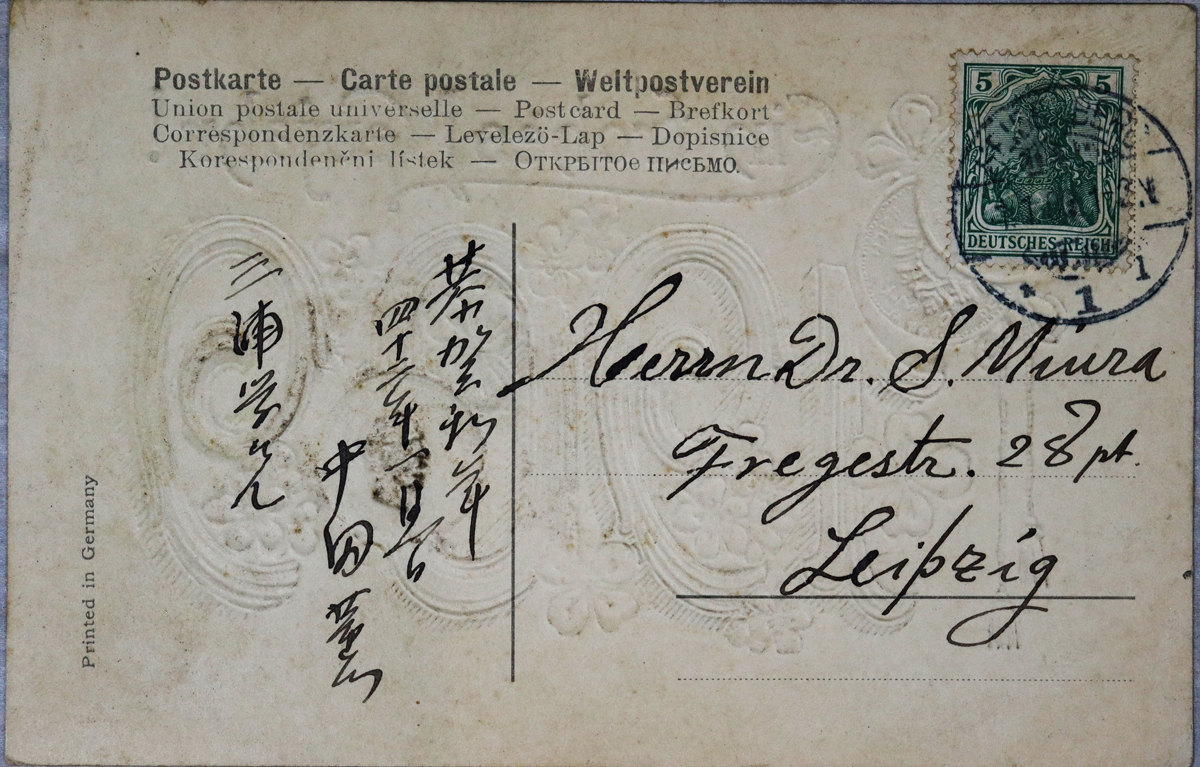 Postkarte — Carte postale — Weltpostverein
Union postale universelle — Postcard — Brefkort
Correspondenzkarte — Levelezö-Lap — Dopisnice
Korespondenĕni lístek — ОТКРЫТОе ПИСЬМО.
5 5
DEUTSCHES REICH
1 1
Herrn Dr. S. Miura
Fregestr. 28 pt.
Leipzig
恭賀新年
四十三年一月一日
中田
三浦学兄
Printed in Germany